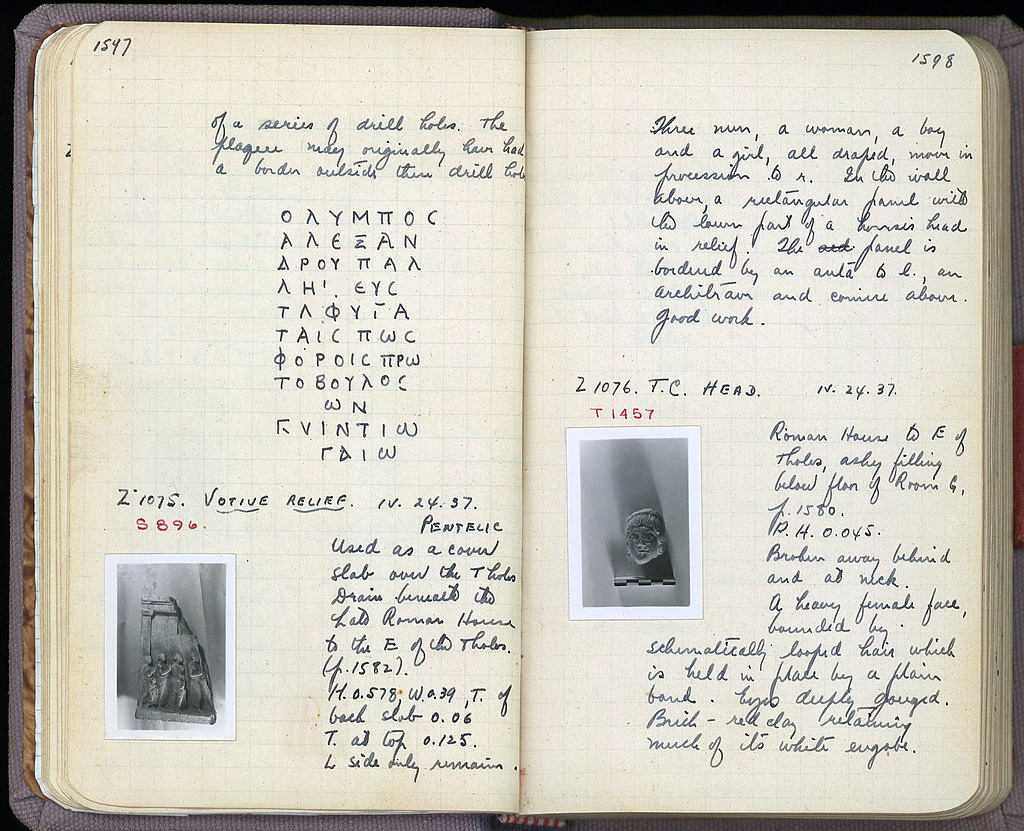 1597
of a series of drill holes. The
plaque may originally have had
a border outside these drill holes
ΟΛΥΜΠΟC
ΑΛΕΞΑΝ
ΔΡΟΥΠΑΛ
ΛΗ'. ΕΥC
ΤΛΦΥΓΑ
ΤΑΙC ΠωC
ΦΟΡΟΙC ΠΡω
ΤΟΒΟΥΛΟC
ωΝ
Γ. VΙΝΤΙω
ΓΑΙω
Z 1075. VOTIVE RELIEF. IV. 24. 37.
S 896.
PENTELIC
Used as a cover
slab over the Tholos
Drain beneath the
Late Roman House
to the E of the Tholos.
(p. 1582).
H. 0.578. W. 0.39, T. of
back slab 0.06
T. at top 0.125.
L side only remains.
1598
Three men, a woman, a boy
and a girl, all draped, move in
procession to r. In the wall
above, a rectangular panel with
the lower part of a horse's head
in relief. The panel is
bordered by an anta to l., an
architrave and cornice above.
Good work.
Z 1076. T.C. HEAD. IV. 24. 37.
T 1457
Roman House to E of
Tholos, ashy filling
below floor of Room G,
p. 1580.
P. H. 0.045.
Broken away behind
and at neck.
A heavy female face,
bounded by
schematically looped hair which
is held in place by a plain
band. Eyes deeply gouged.
Brick-red clay retaining
much of its white engobe.